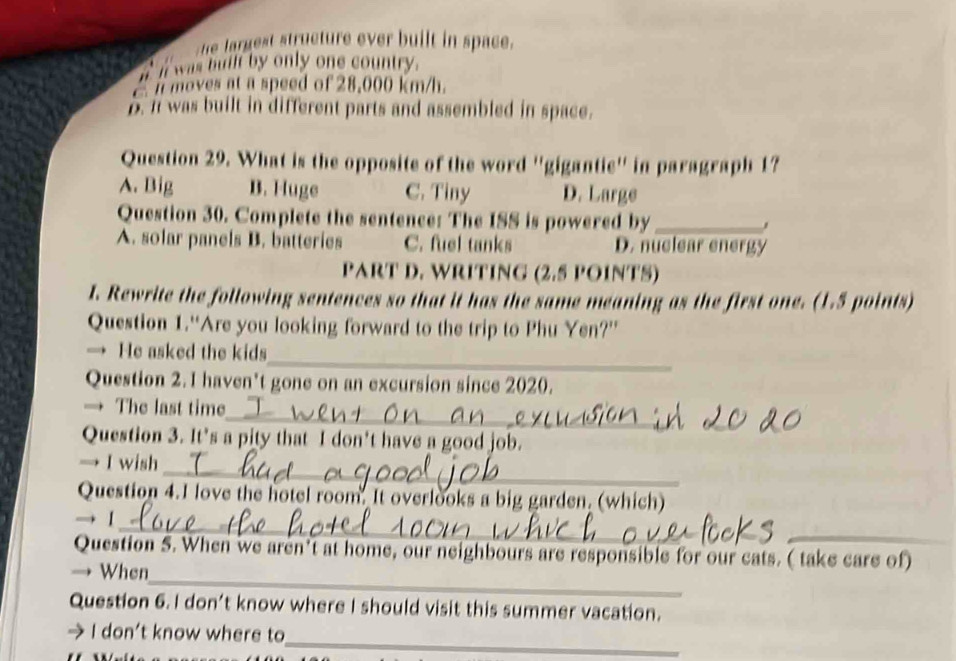 the largest structure ever built in space.
B. It was built by only one country.
C. It moves at a speed of 28,000 km/h.
D. It was built in different parts and assembled in space.
Question 29. What is the opposite of the word "gigantic" in paragraph 1?
A. Big B. Huge C. Tiny D. Large
Question 30. Complete the sentence: The ISS is powered by ________.
A. solar panels B. batteries C. fuel tanks D. nuclear energy
PART D. WRITING (2.5 POINTS)
I. Rewrite the following sentences so that it has the same meaning as the first one. (1.5 points)
Question 1."Are you looking forward to the trip to Phu Yen?"
→ He asked the kids
Question 2. I haven't gone on an excursion since 2020.
→ The last time I went on an excursion in 2020
Question 3. It's a pity that I don't have a good job.
→ I wish I had a good job
Question 4.I love the hotel room. It overlooks a big garden. (which)
→ I love the hotel room which overlocks
Question 5. When we aren't at home, our neighbours are responsible for our cats. ( take care of)
→ When
Question 6. I don't know where I should visit this summer vacation.
→ I don't know where to